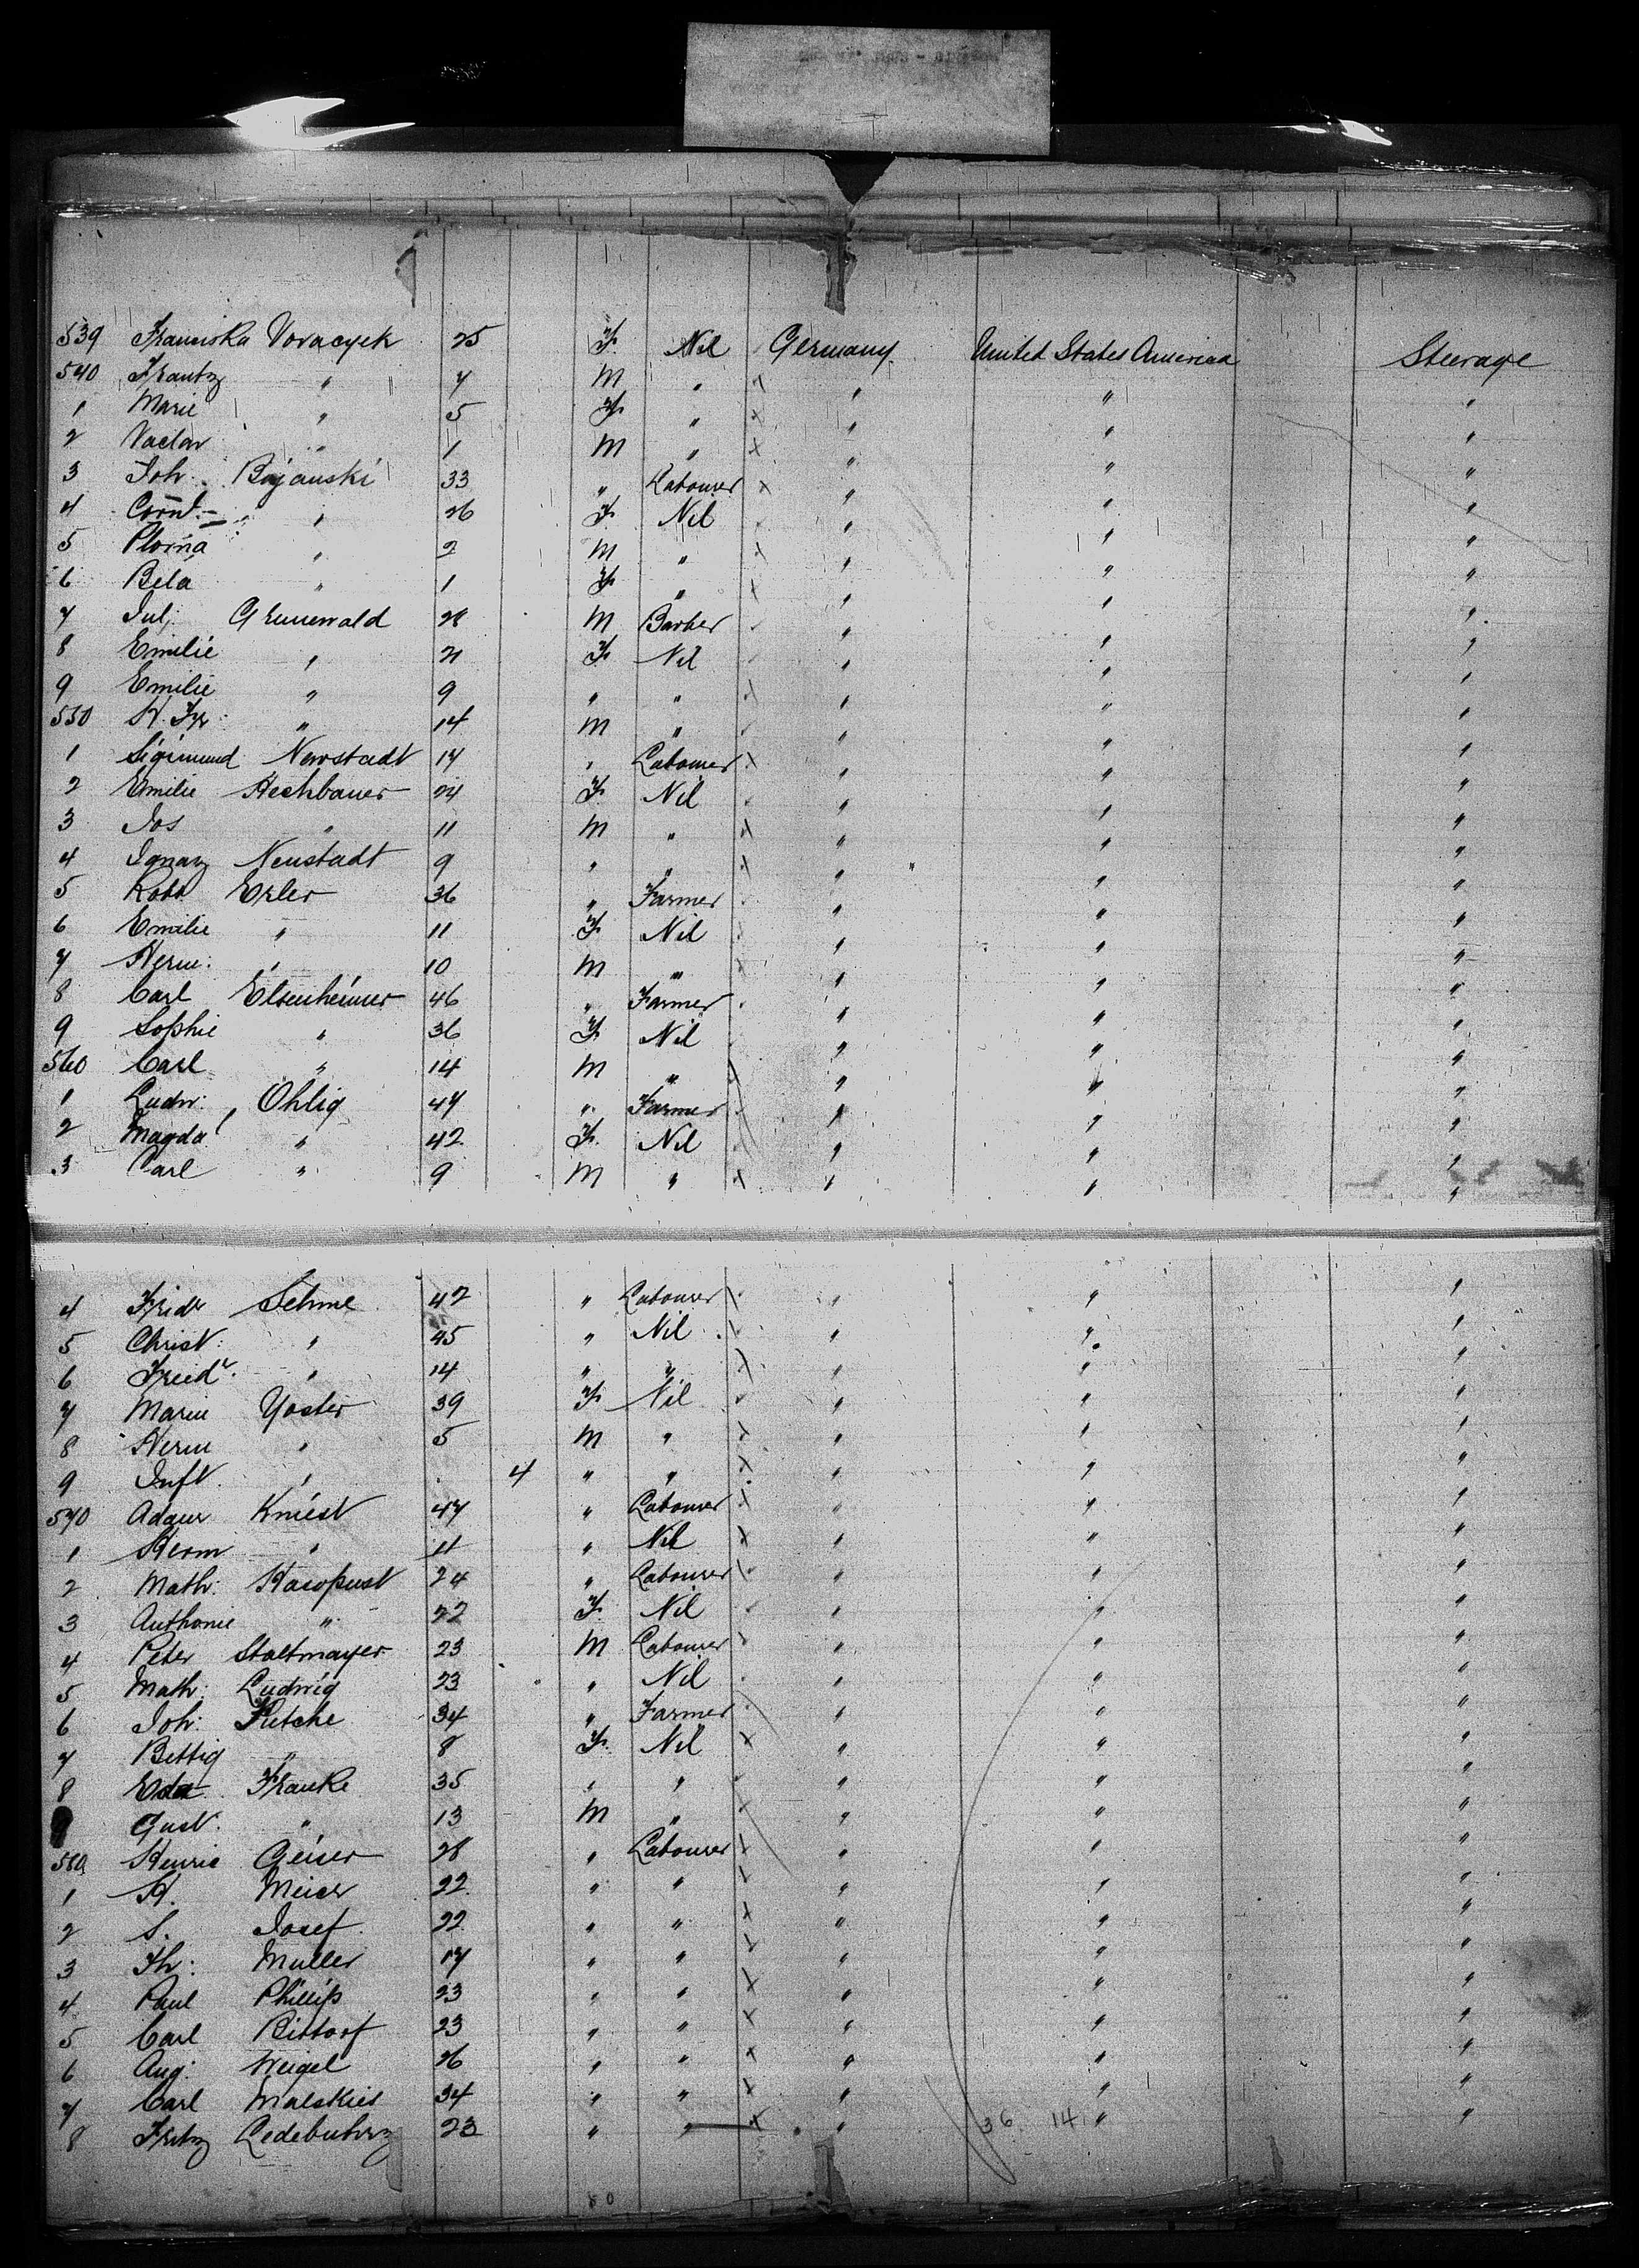 539 Franciska Voracyek 25 F. Nil Germany United States America Steerage
540 Frantz " 7 M " " " "
1 Marie " 5 F. " " " "
2 Vaclav " 1 M " " " "
3 Joh. Bajanski 33 " Labourer " " "
4 " 26 F. Nil " " "
5 " 2 M " " " "
6 Bela " 1 F. " " " "
7 Jul: Grunewald 28 M Barber " " "
8 Emilie " 21 F. Nil " " "
9 Emilie " 9 " " " " "
550 " 14 M " " " "
1 Sigimund Newstadt 17 " Labourer " " "
2 Emilie Hechbauer 24 F. Nil " " "
3 Jos " 11 M " " " "
4 Ignaz Neustadt 9 " " " " "
5 Robt Erler 36 " Farmer " " "
6 Emilie " 11 F. Nil " " "
7 Herm: " 10 M " " " "
8 Carl Elsenheimer 46 " Farmer " " "
9 Sophie " 36 F. Nil " " "
560 Carl " 14 M " " " "
1 Ludw: Ohlig 47 " Farmer " " "
2 Magda " 42 F. Nil " " "
3 Carl " 9 M " " " "
4 Fridr Sehme 42 " Labourer " " "
5 Christ: " 45 " Nil " " "
6 Freidr. " 14 " " " " "
7 Marie Yoster 39 F. Nil " " "
8 Herm " 5 M " " " "
9 Inft. " 4 " " " " "
570 Adam Kniest 47 " Labourer " " "
1 Herm " 11 " Nil " " "
2 Math: Hasopust 24 " Labourer " " "
3 Anthonie " 22 F. Nil " " "
4 Peter Staltmayer 23 M Labourer " " "
5 Math: Ludwig 23 " Nil " " "
6 Joh: 34 " Farmer " " "
7 Bettig " 8 F. Nil " " "
8 Eda Franke 35 " " " " "
9 Gust. " 13 M " " " "
580 Henric Geiser 28 " Labourer " " "
1 H. Meier 22 " " " " "
2 S. Josef 22 " " " " "
3 Th: Muller 17 " " " " "
4 Paul Phillip 23 " " " " "
5 Carl Bittorf 23 " " " " "
6 Aug: Weigel 26 " " " " "
7 Carl Malskies 34 " " " " "
8 Fritz Ledebuhrz 23 " " " 36 141 " "